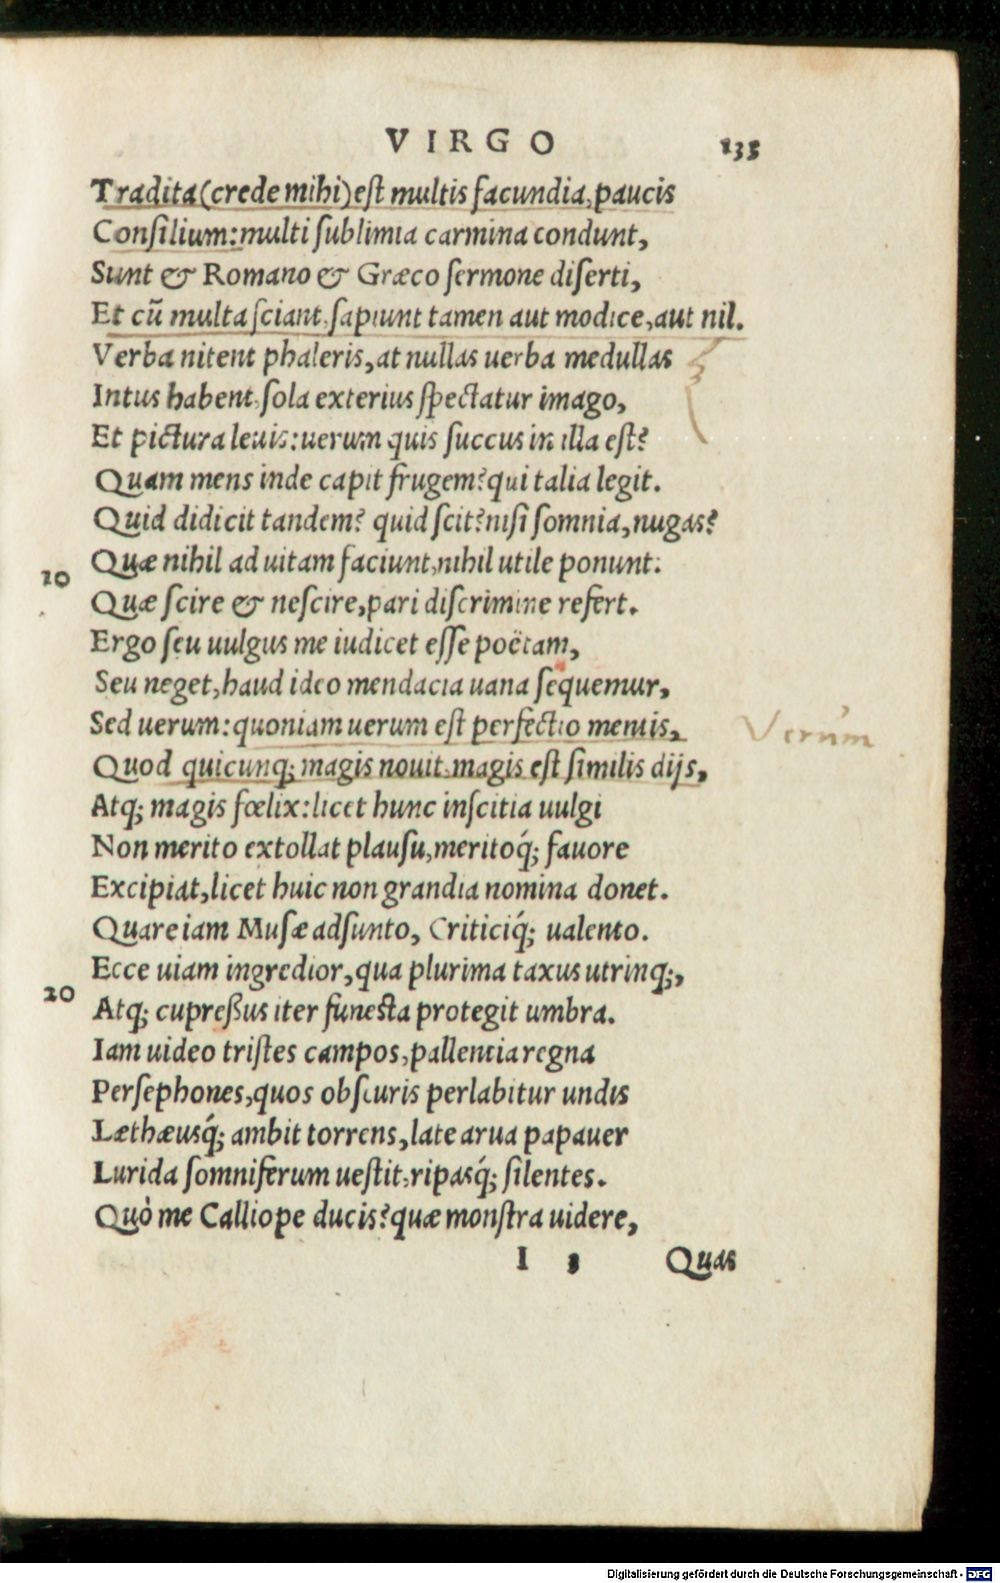 VIRGO 133
Tradita (crede mihi) eſt multis facundia, paucis
Conſilium: multi ſublimia carmina condunt,
Sunt & Romano & Græco ſermone diſerti,
Et cū multa ſciant, ſapiunt tamen aut modice, aut nil.
Verba nitent phaleris, at nullas uerba medullas
Intus habent, ſola exterius ſpectatur imago,
Et pictura leuis: uerum quis ſuccus in illa eſt?
Quam mens inde capit frugem? qui talia legit.
Quid didicit tandem? quid ſcit? niſi ſomnia, nugas?
10
Quæ nihil ad uitam faciunt, nihil utile ponunt:
Quæ ſcire & neſcire, pari diſcrimine refert.
Ergo ſeu uulgus me iudicet eſſe poëtam,
Seu neget, haud ideo mendacia uana ſequemur,
Sed uerum: quoniam uerum eſt perfectio mentis,
Verum
Quod quicunq; magis nouit, magis eſt ſimilis dijs,
Atq; magis fœlix: licet hunc inſcitia uulgi
Non merito extollat plauſu, meritoq́; fauore
Excipiat, licet huic non grandia nomina donet.
Quare iam Muſæ adſunto, Criticiq́; ualento.
Ecce uiam ingredior, qua plurima taxus utrinq;,
20
Atq; cupreßus iter funeſta protegit umbra.
Iam uideo triſtes campos, pallentia regna
Perſephones, quos obſcuris perlabitur undis
Læthæusq́; ambit torrens, late arua papauer
Lurida ſomniferum ueſtit, ripasq́; ſilentes.
Quò me Calliope ducis? quæ monſtra uidere,
I 3 Quas
Digitalisierung gefördert durch die Deutsche Forschungsgemeinschaft - DFG